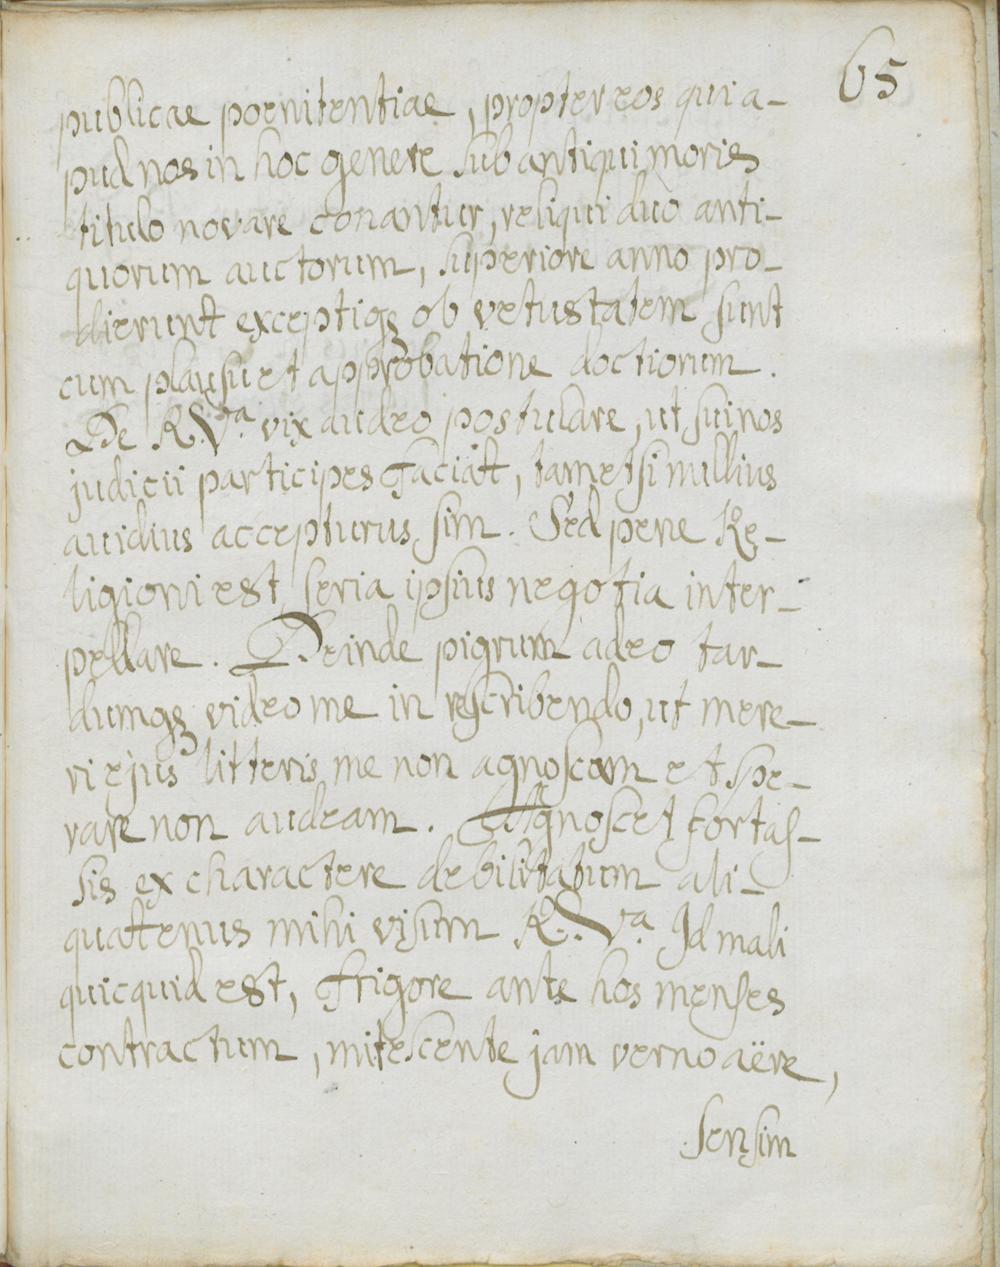 65
publicae poenitentiae, propter eos qui a-
pud nos in hoc genere sub antiqui moris
titulo novare conantur, reliqui duo anti-
quorum auctorum, superiore anno pro-
dierunt exceptiqꝫ ob vetustatem sunt
cum plausu et approbatione doctiorum.
De R. V.ª vix audeo postulare, ut sui nos
judicii participes faciat, tametsi nullius
avidius accepturus sim. Sed pene Re-
ligioni est seria ipsius negotia inter-
pellare. Deinde pigrum adeo tar-
dumqꝫ video me in rescribendo, ut mere-
ri ejus litteris me non agnoscam et spe-
rare non audeam. Agnoscet fortas-
sis ex charactere debilitatum ali-
quatenus mihi visum R. V.ª Id mali
quicquid est, frigore ante hos menses
contractum, mitescente jam verno aëre,
sensim